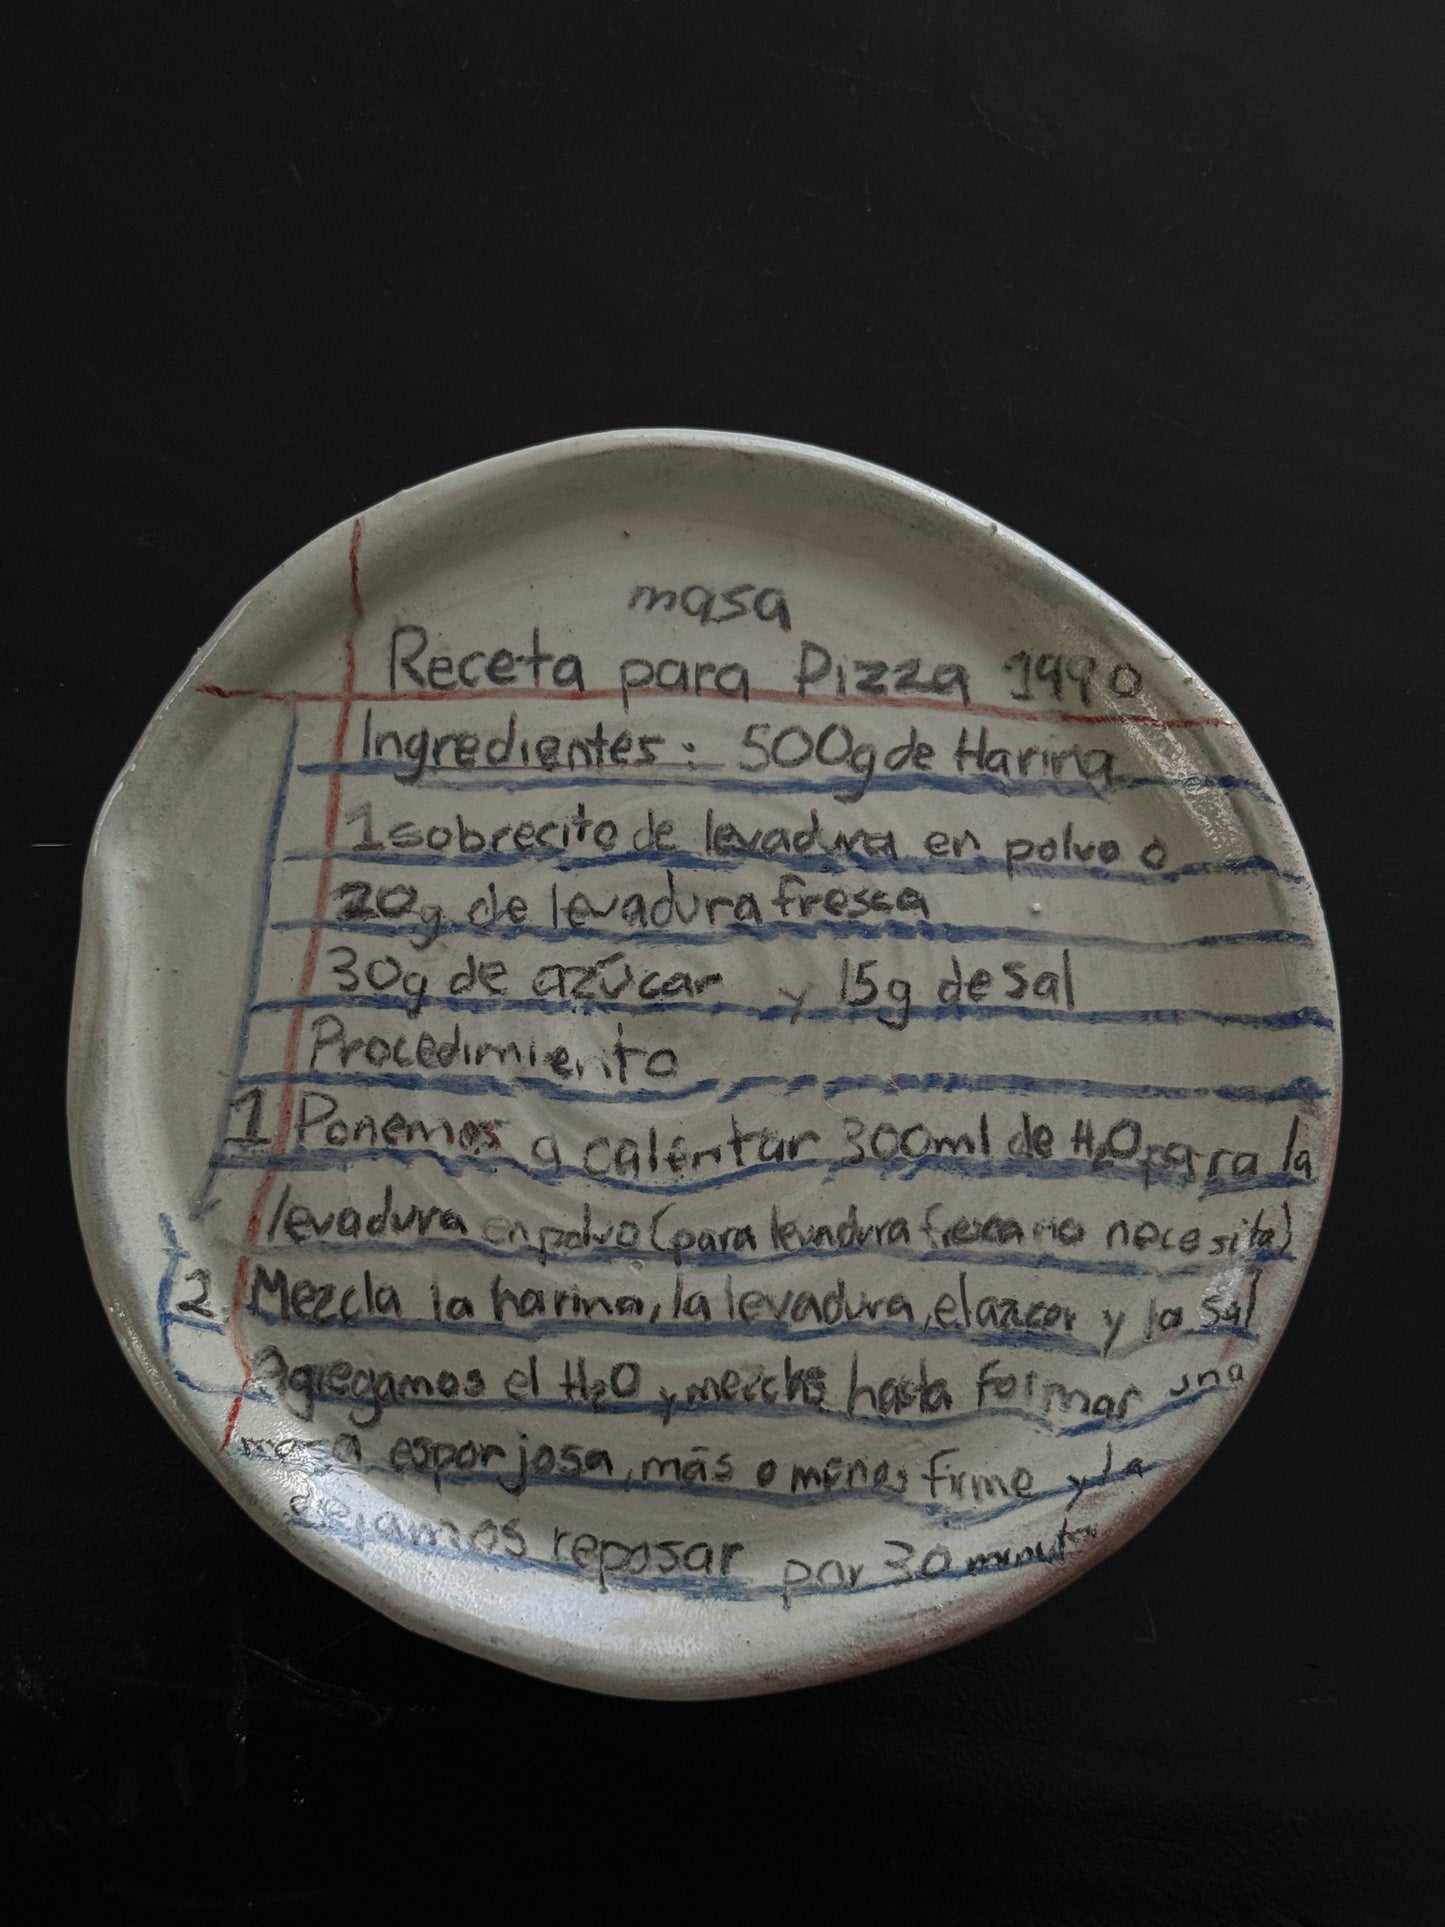 masa
Receta para Pizza 1990
Ingredientes: 500g de Harina
1 sobrecito de levadura en polvo o
20g de levadura fresca
30g de azúcar y 15g de sal
Procedimiento
1 Ponemos a calentar 300ml de H₂O para la
levadura en polvo (para levadura fresca no necesita)
2 Mezcla la harina, la levadura, el azucar y la sal
Agregamos el H₂O, mezcla hasta formar una
masa esponjosa, más o menos firme y la
dejamos reposar por 30 minutos